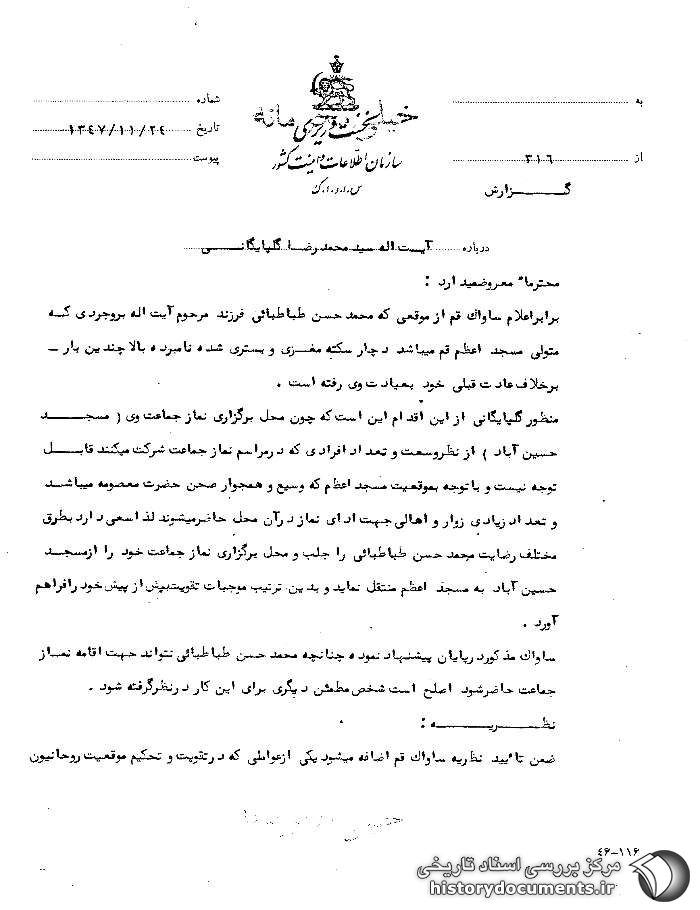 به
شماره
خیلی مانه
تاریخ ۱۳۴۷/۱۱/۲۴
سازمان اطلاعات و امنیت کشور
از ۳۱۶
پیوست
س.ا.و.ا.ک
گزارش
درباره آیت اله سید محمد رضا گلپایگانی
محترماً معروضمیدارد :
برابر اعلام ساواک قم از موقعی که محمد حسن طباطبائی فرزند مرحوم آیت اله بروجردی که
متولی مسجد اعظم قم میباشد دچار سکته مغزی و بستری شده نامبرده بالا چندین بار -
برخلاف عادت قبلی خود بعیادت وی رفته است .
منظور گلپایگانی از این اقدام این است که چون محل برگزاری نماز جماعت وی ( مسجد
حسین آباد ) از نظر وسعت و تعداد افرادی که در مراسم نماز جماعت شرکت میکنند قابل
توجه نیست و با توجه بموقعیت مسجد اعظم که وسیع و همجوار صحن حضرت معصومه میباشد
و تعداد زیادی زوار و اهالی جهت ادای نماز در آن محل حاضر میشوند لذا سعی دارد بطرق
مختلف رضایت محمد حسن طباطبائی را جلب و محل برگزاری نماز جماعت خود را از مسجد
حسین آباد به مسجد اعظم منتقل نماید و بدین ترتیب موجبات تقویت بیش از پیش خود را فراهم
آورد .
ساواک مذکور در پایان پیشنهاد نموده چنانچه محمد حسن طباطبائی نتواند جهت اقامه نماز
جماعت حاضر شود اصلح است شخص مطمئن دیگری برای این کار در نظر گرفته شود .
نظریه :
ضمن تائید نظریه ساواک قم اضافه میشود یکی از عواملی که در تقویت و تحکیم موقعیت روحانیون
۴۶-۱۱۶
مرکز بررسی اسناد تاریخی
historydocuments.ir